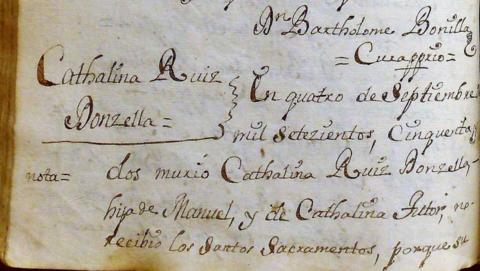 Dn Bartholome Bonilla
= Cura pprio =
Cathalina Ruiz
Donzella =
En quatro de Septiembre
mil Setezientos, Cinquenta y
nota = dos murio Cathalina Ruiz Donzella,
hija de Manuel, y de Cathalina no
recibio los Santos Sacramentos, porque su